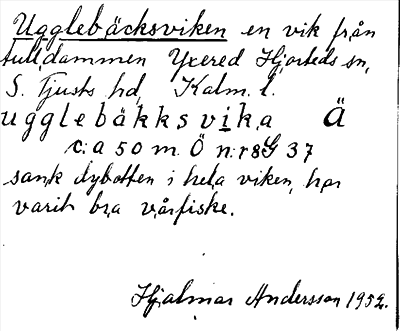 Ugglebäcksviken en vik från
tulldammen Yxered Hjorteds sn,
S. Tjusts hd, Kalm. l.
ugglebäkksvika Ä
c:a 50 m. Ö n:r 8G 37
sank dybotten i hela viken, har
varit bra vårfiske.
Hjalmar Andersson 1952.